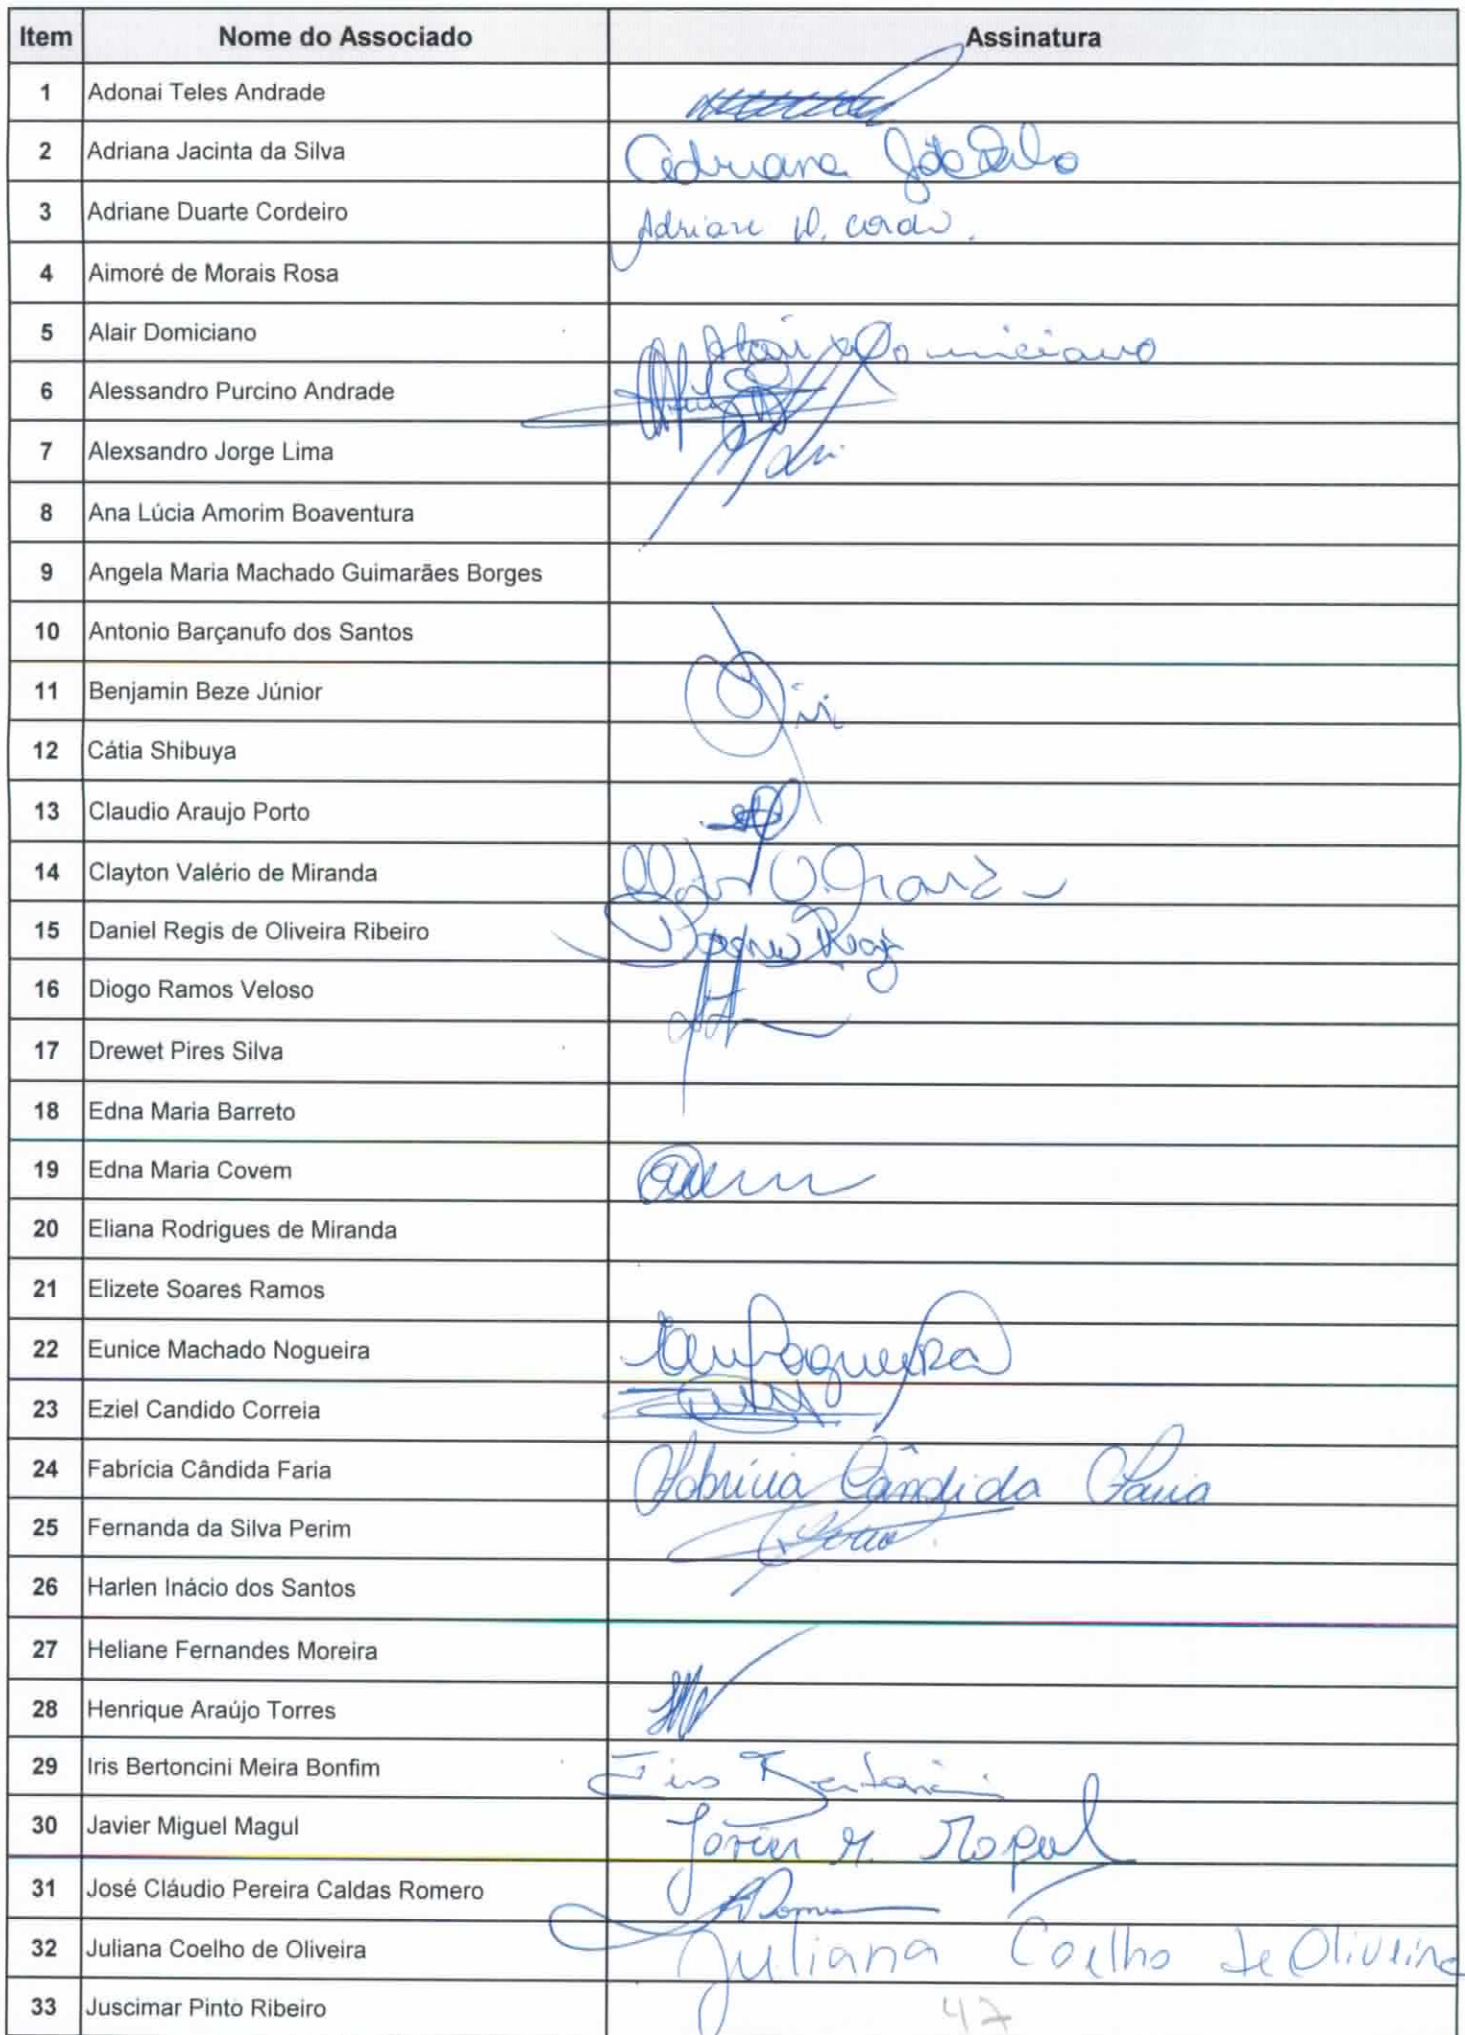 Item Nome do Associado Assinatura
1 Adonai Teles Andrade
2 Adriana Jacinta da Silva Adriana
3 Adriane Duarte Cordeiro Adriane D.
4 Aimoré de Morais Rosa
5 Alair Domiciano Alair Domiciano
6 Alessandro Purcino Andrade
7 Alexsandro Jorge Lima
8 Ana Lúcia Amorim Boaventura
9 Angela Maria Machado Guimarães Borges
10 Antonio Barçanufo dos Santos
11 Benjamin Beze Júnior
12 Cátia Shibuya
13 Claudio Araujo Porto
14 Clayton Valério de Miranda
15 Daniel Regis de Oliveira Ribeiro
16 Diogo Ramos Veloso
17 Drewet Pires Silva
18 Edna Maria Barreto
19 Edna Maria Covem
20 Eliana Rodrigues de Miranda
21 Elizete Soares Ramos
22 Eunice Machado Nogueira
23 Eziel Candido Correia
24 Fabrícia Cândida Faria Fabrícia Cândida Faria
25 Fernanda da Silva Perim
26 Harlen Inácio dos Santos
27 Heliane Fernandes Moreira
28 Henrique Araújo Torres
29 Iris Bertoncini Meira Bonfim Iris Bertoncini
30 Javier Miguel Magul Javier M. Magul
31 José Cláudio Pereira Caldas Romero
32 Juliana Coelho de Oliveira Juliana Coelho de Oliveira
33 Juscimar Pinto Ribeiro 47